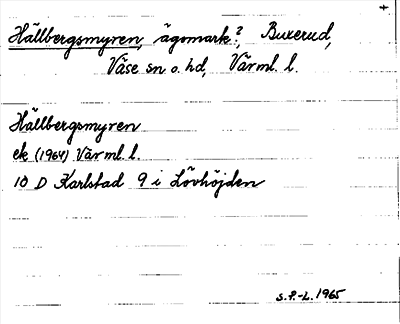 +
Hällbergsmyren, ägomark?, Buxerud,
Väse sn o. hd, Värml. l.
Hällbergsmyren
ek (1964) Värml. l.
10 D Karlstad 9 i Lövhöjden
S.P.-L. 1965